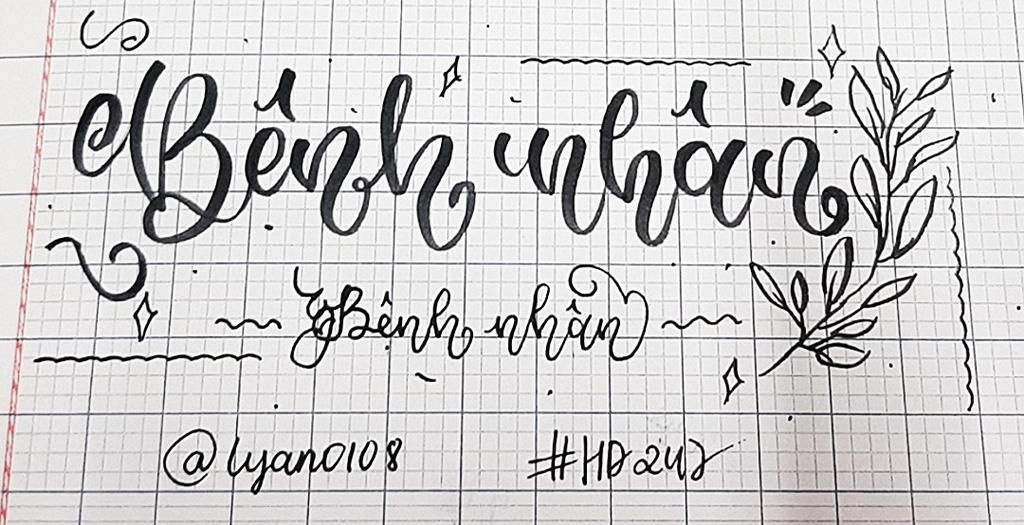 Bênh nhân
Bênh nhân
@lyan0108 #HD247